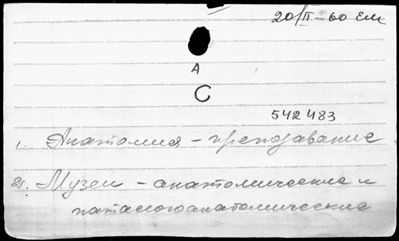 20/II-60 Ем
А
С
542483
1. Анатомия - преподавание
2. Музеи - анатомические и
патологоанатомические